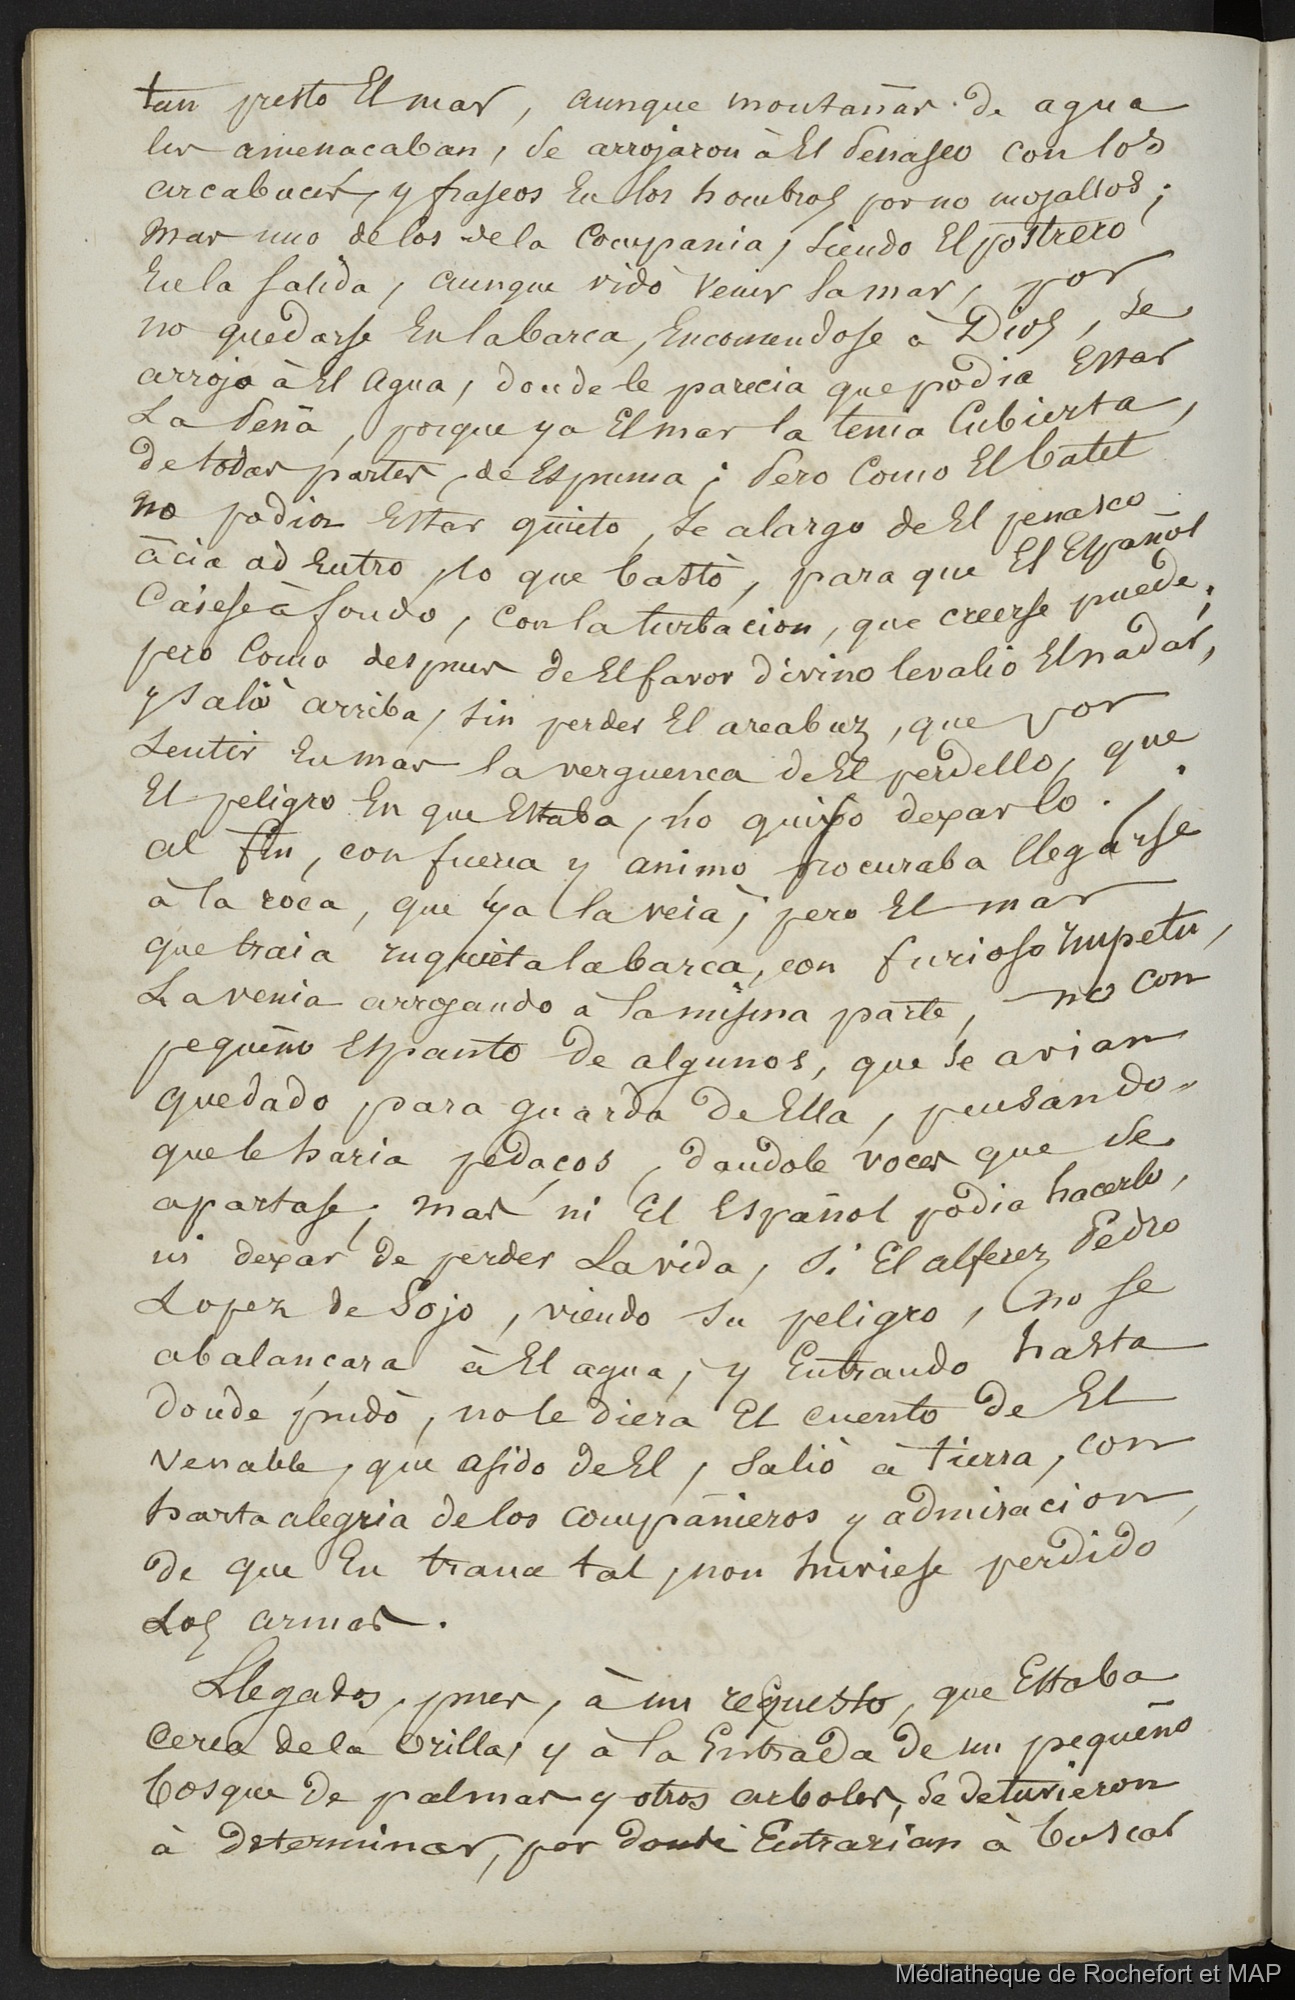 tan presto El mar, aunque montañas de agua
les amenacaban, se arrojaron à El Penasco con los
arcabuces, y frascos En los hombros por no mojallos;
mas uno de los de la Compania, siendo El postrero
En la salida, aunque vido venir la mar, por
no quedarse En la barca, Encomendose à Dios, se
arrojo à El agua, donde le parecia que podia Estar
La Peña, porque ya El mar la tenia Cubierta,
de todas partes, de Espuma; Pero Como El batel
no podia Estar quieto, se alargo de El penasco
àcia ad Entro, lo que bastò, para que El Español
Caiese à fondo, Con la turbacion, que creerse puede;
pero Como despues de El favor divino le valio El nadar,
y saliò arriba, sin perder El arcabuz, que por
sentir En mas la verguenca de El perdello, que
El peligro En que Estaba, no quiso dexarlo.
al fin, con fuerca y animo procuraba llegarse
à la roca, que ya la veia; pero El mar
que traia inquieta la barca, con furioso impetu,
La venia arrojando à la misma parte, no con
pequeño Espanto de algunos, que se avian
quedado para guarda de Ella, pensando
que le haria pedaços, dandole voces que se
apartase; mas ni El Español podia hacerlo,
ni dexar de perder La vida, si El alferez Pedro
Lopez de Sojo, viendo su peligro, no se
abalançara à El agua, y Entrando hasta
donde pudò, no le diera El cuento de El
venable, que asido de El, saliò à tierra, con
harta alegria de los compañieros y admiracion,
de que En trance tal, non huviese perdido
Los armas.
Llegados, pues, à un requesto, que Estaba
Cerca de la Orilla, y à la Entrada de un pequeño
bosque de palmas y otros arboles, se detuvieron
à determinar, por donde Entrarian à buscar
Médiathèque de Rochefort et MAP